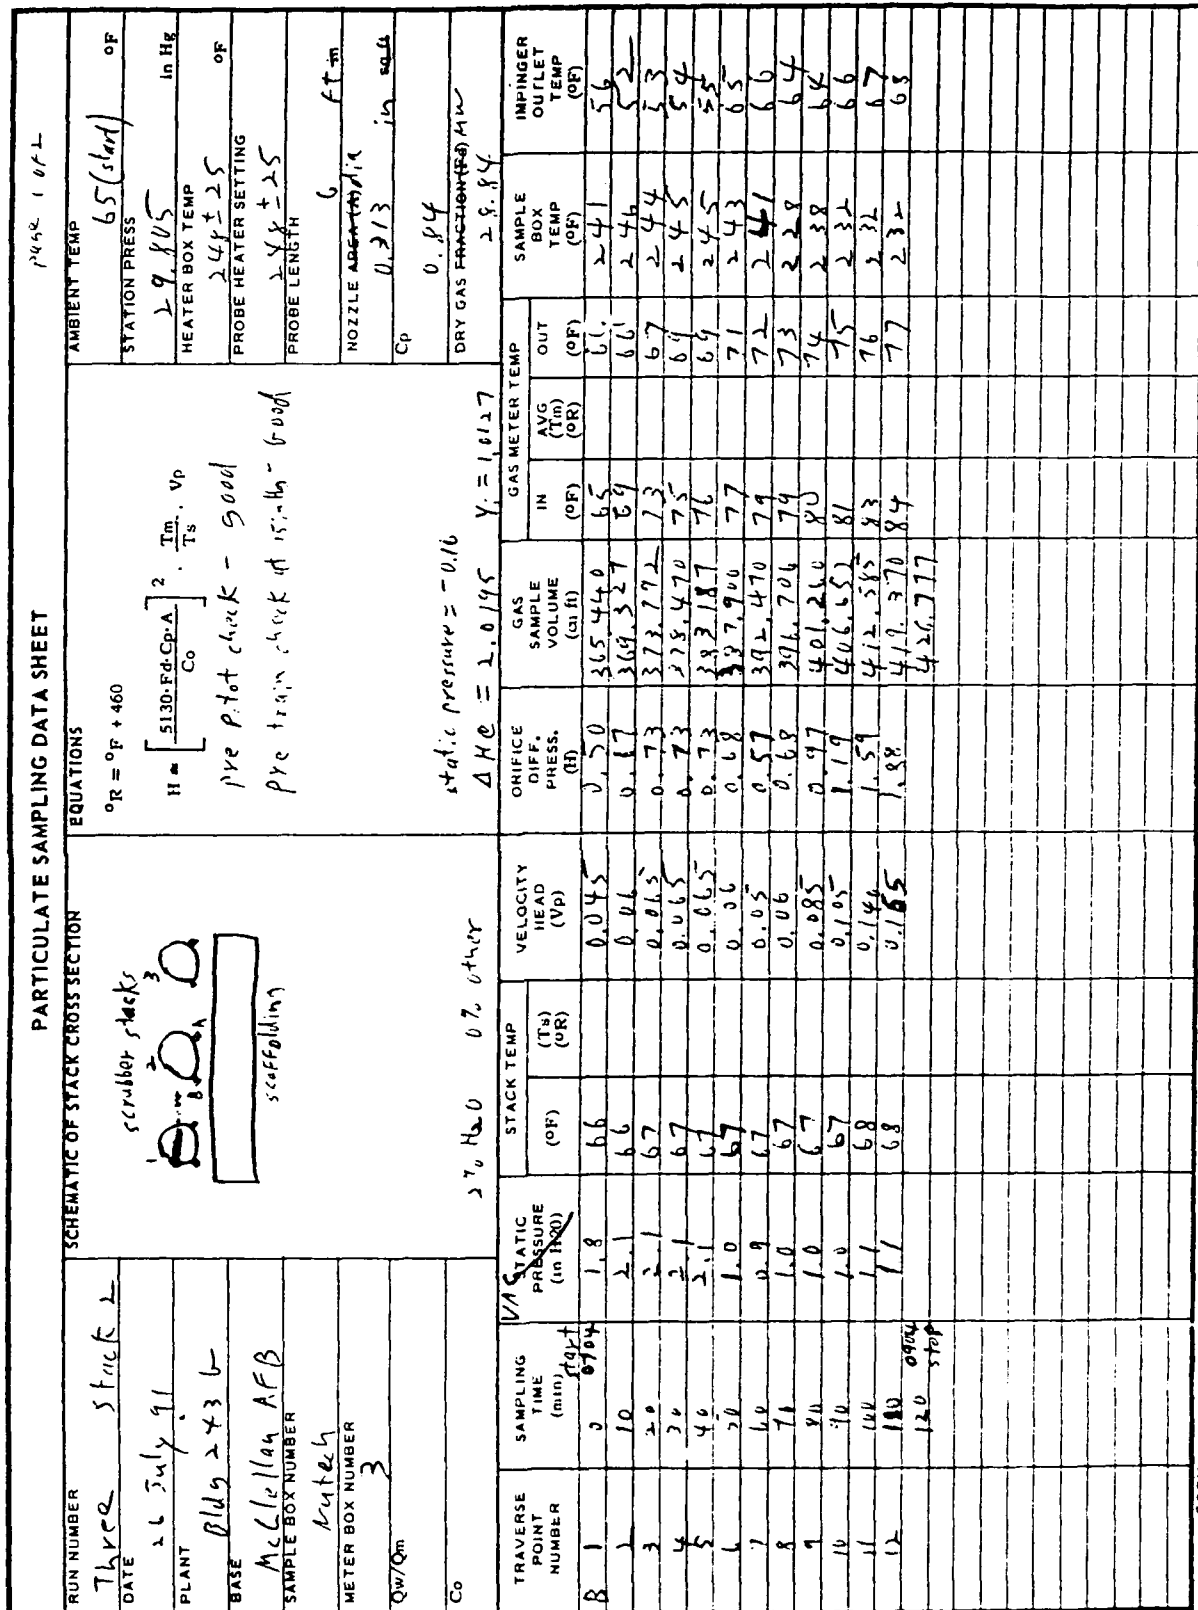 page 1 of 2
PARTICULATE SAMPLING DATA SHEET
RUN NUMBER
Three Stack 2
DATE
26 July 91
PLANT
Bldg 243 6
BASE
McClellan AFB
SAMPLE BOX NUMBER
Nutech
METER BOX NUMBER
3
Qw/Qm
Co
SCHEMATIC OF STACK CROSS SECTION
scrubber stacks
1 2 3
B A
scaffolding
2% H2O 0% other
EQUATIONS
ºR = ºF + 460
H = [ 5130·Fd·Cp·A / Co ]² · Tm / Ts · Vp
pre pitot check - good
pre train check at 15 in Hg - Good
static pressure = -0.16
ΔH@ = 2.0195 Y = 1.0127
AMBIENT TEMP
65 (start) ºF
STATION PRESS
29.805 in Hg
HEATER BOX TEMP
248 ± 25 ºF
PROBE HEATER SETTING
248 ± 25
PROBE LENGTH
6 ft in
NOZZLE AREA (A) dia
0.313 in sq ft
Cp
0.84
DRY GAS FRACTION (Fd) MW
28.84
TRAVERSE POINT NUMBER
SAMPLING TIME (min)
VAC STATIC PRESSURE (in H2O)
STACK TEMP (ºF) (Ts) (ºR)
VELOCITY HEAD (Vp)
ORIFICE DIFF. PRESS. (H)
GAS SAMPLE VOLUME (cu ft)
GAS METER TEMP IN (ºF) AVG (Tm) (ºR) OUT (ºF)
SAMPLE BOX TEMP (ºF)
IMPINGER OUTLET TEMP (ºF)
start 0704
B 1 0 1.8 66 0.045 0.50 365.440 65 61 241 56
2 10 2.1 66 0.06 0.67 369.327 69 66 246 52
3 20 2.1 67 0.065 0.73 373.772 73 67 244 53
4 30 2.1 67 0.065 0.73 378.470 75 69 245 54
5 40 2.1 67 0.065 0.73 383.187 76 69 245 55
6 50 1.0 67 0.06 0.68 387.900 77 71 243 65
7 60 0.9 67 0.05 0.57 392.470 79 72 241 66
8 70 1.0 67 0.06 0.68 396.706 79 73 228 64
9 80 1.0 67 0.085 0.97 401.260 80 74 238 64
10 90 1.0 67 0.105 1.19 406.652 81 75 232 66
11 100 1.1 68 0.140 1.59 412.585 83 76 232 67
12 110 1.1 68 0.165 1.88 419.370 84 77 232 63
120 0904 stop 426.777